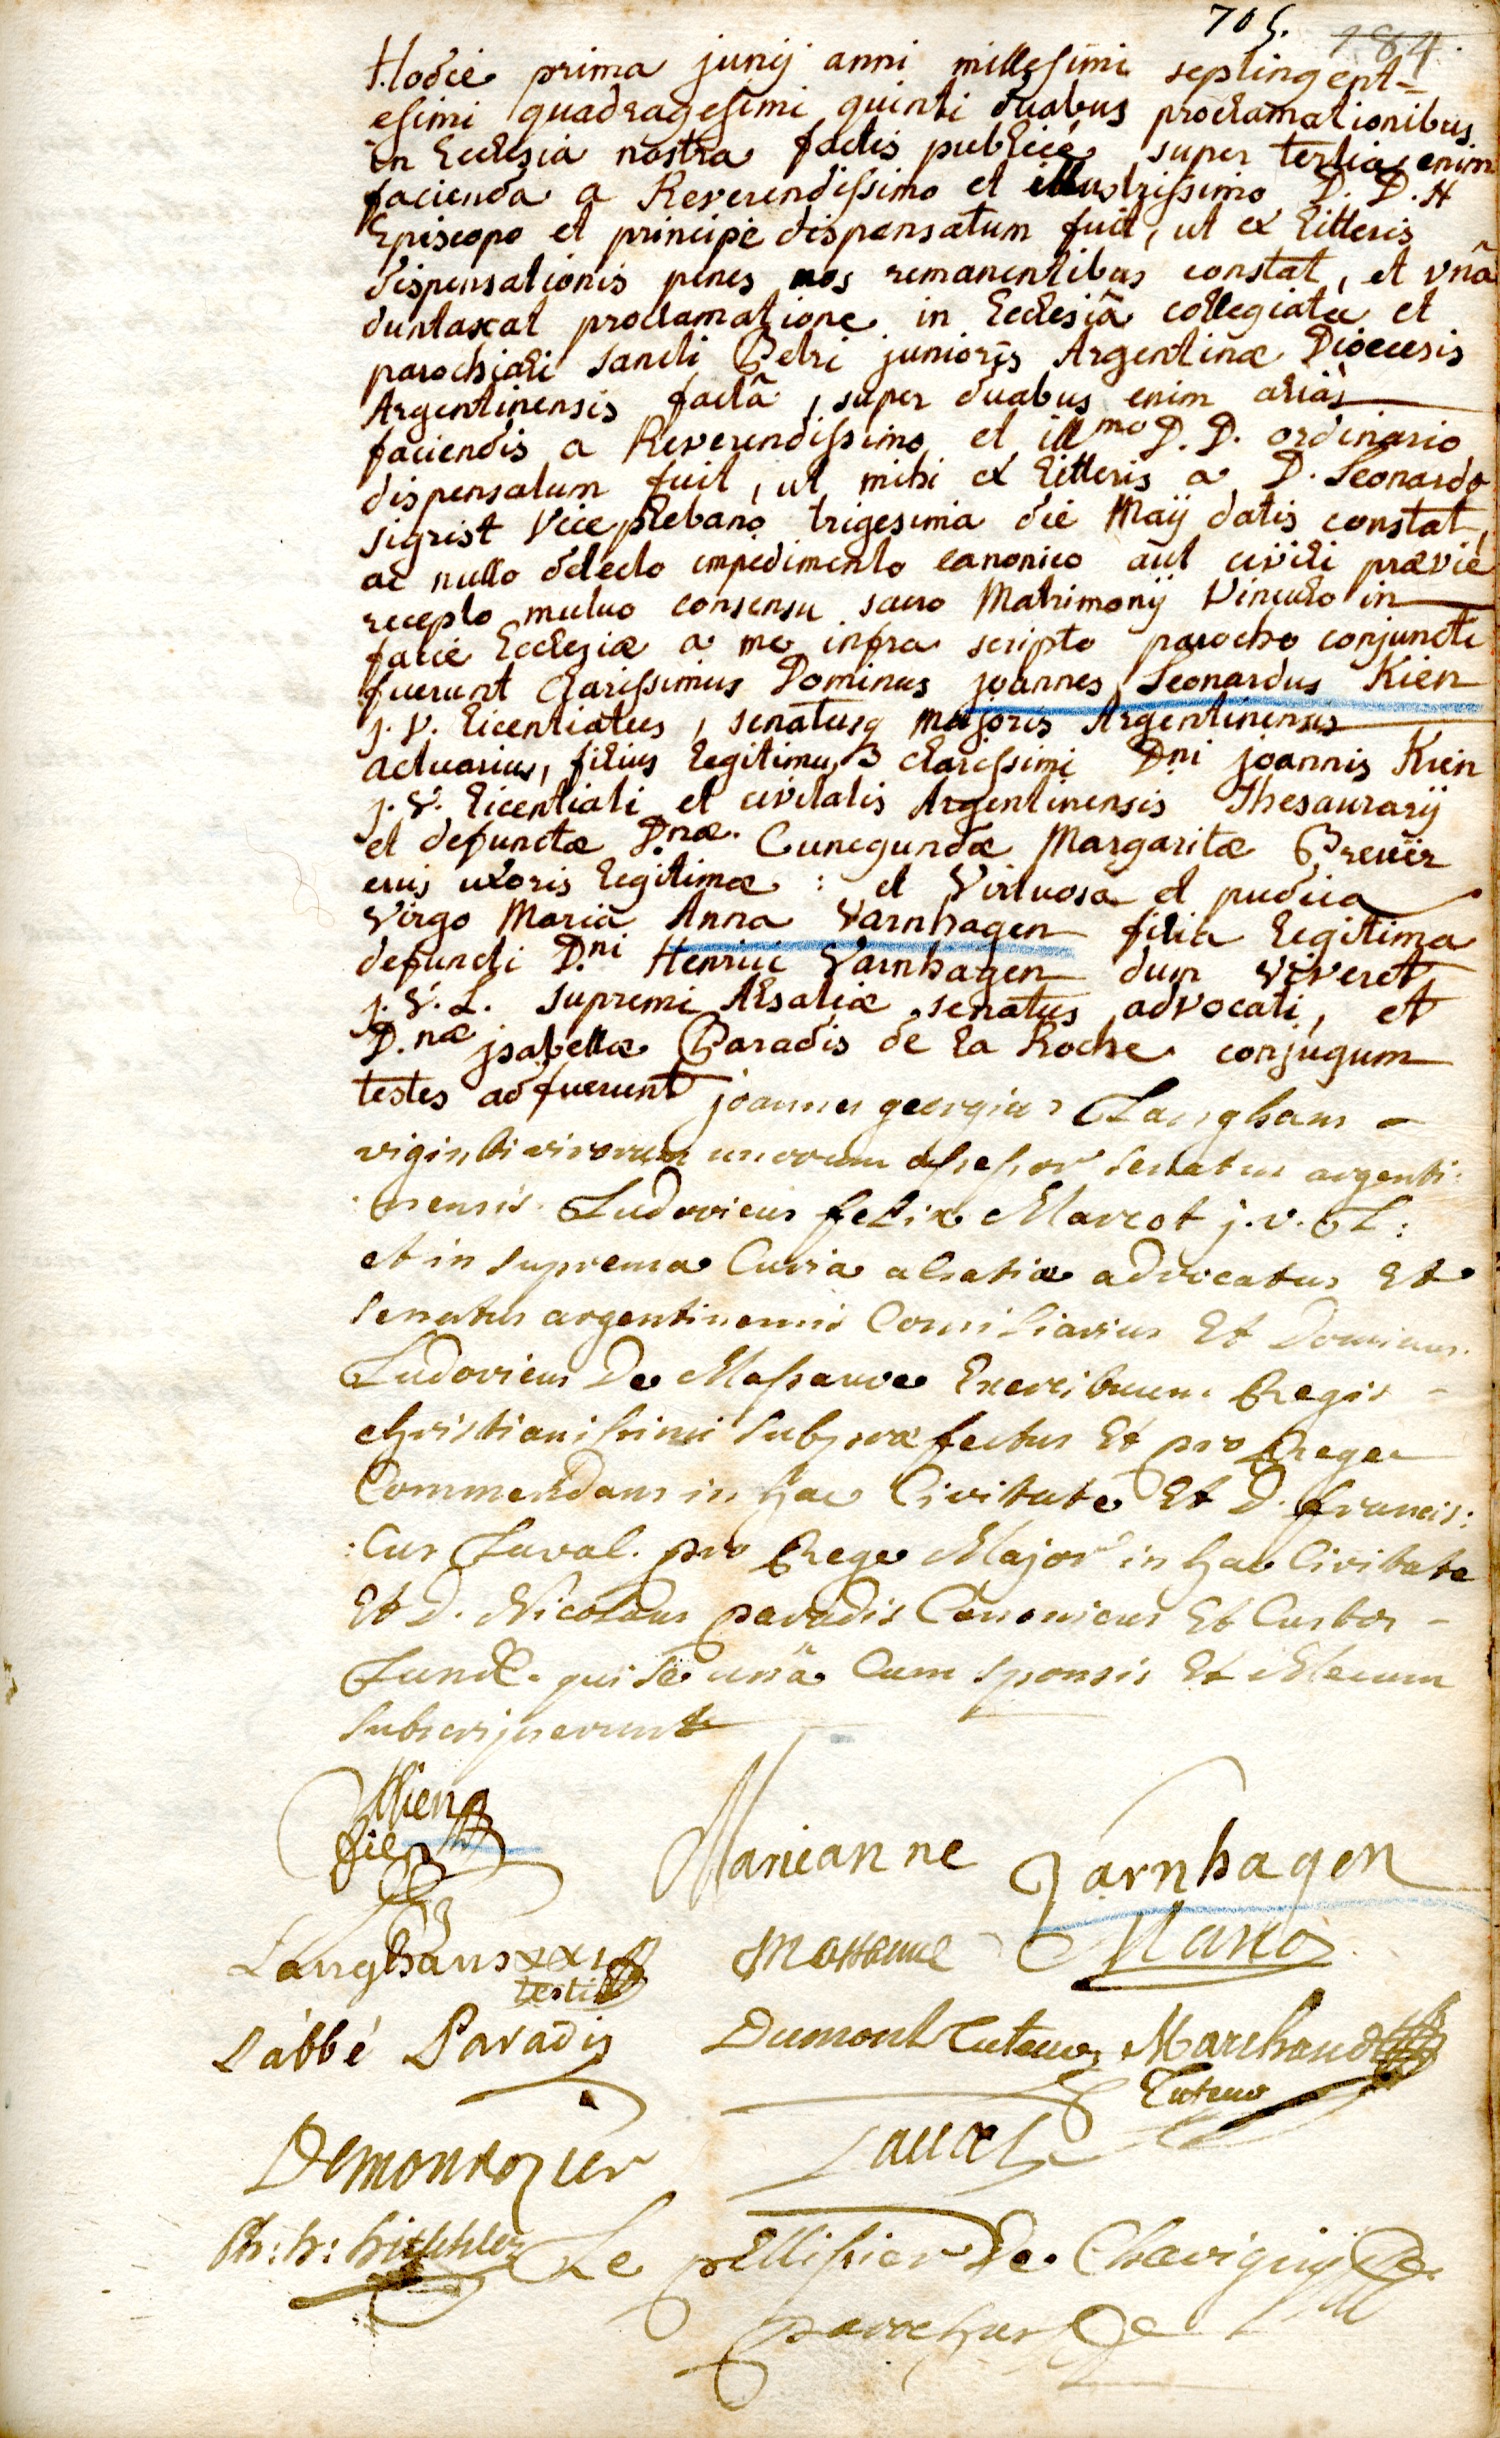 705. 184.
Hodie prima junij anni millesimi septingent-
esimi quadragesimi quinti duabus proclamationibus
in Ecclesia nostra factis publicè, super tertia enim
facienda a Reverendissimo et illustrissimo D. D. H
Episcopo et principe dispensatum fuit, ut ex litteris
dispensationis penes nos remanentibus constat, et vnâ
duntaxat proclamatione in Ecclesiâ collegiatâ et
parochiali Sancti Petri junioris Argentinæ Dioecesis
Argentinensis factâ, super duabus enim aliàs
faciendis a Reverendissimo et illmo D. D. ordinario
dispensatum fuit, ut mihi ex litteris a D. Leonardo
Sigrist Vice plebano trigesima die Maij datis constat,
ac nullo detecto impedimento canonico aut civili prævie
recepto mutuo consensu sacro Matrimonij Vinculo in
facie Ecclesiæ a me infra scripto parocho conjuncti
fuerunt Clarissimus Dominus joannes Leonardus Kien
j. V. licentiatus, senatusq majoris Argentinensis
actuarius, filius legitimus clarissimi Dni joannis Kien
j. V. licentiati et civitatis Argentinensis Thesaurarij
et defunctæ D.næ. Cunegundæ Margaritæ Breüer
eius uxoris legitimæ : et Virtuosa et pudica
Virgo Maria Anna Varnhagen filia legitima
defuncti D.ni Henrici Varnhagen dum viveret
j. V. L. supremi Alsatiæ senatus advocati, et
D.næ jsabellæ Paradis de la Roche conjugum
testes adfuerunt joannes georgius Langhans
viginti virorum unorum assessor Senatus argenti:
:nensis. Ludovicus felix Marcot j. v. L:
et in suprema Curia alsatiæ advocatus Et
Senatus argentinensis Consiliarius Et Dominus
Ludovicus De Massauve Exercituum Regis
christianissimi Subpræfectus Et pro Rege
Commendans in hac Civitate Et D. francis:
:cus Laval. pro Rege Major in hac Civitate
Et D. Nicolaus paradis Canonicus Et Custos
qui se unâ Cum sponsis Et Mecum
Subscripserunt
Kien
fils Marianne Varnhagen
Langhans XXI Massauve
testis
L'abbé Paradis Dumont Tuteur Marchand
Tuteur
Demontozier
Le pellissier De Chavigny
parochus